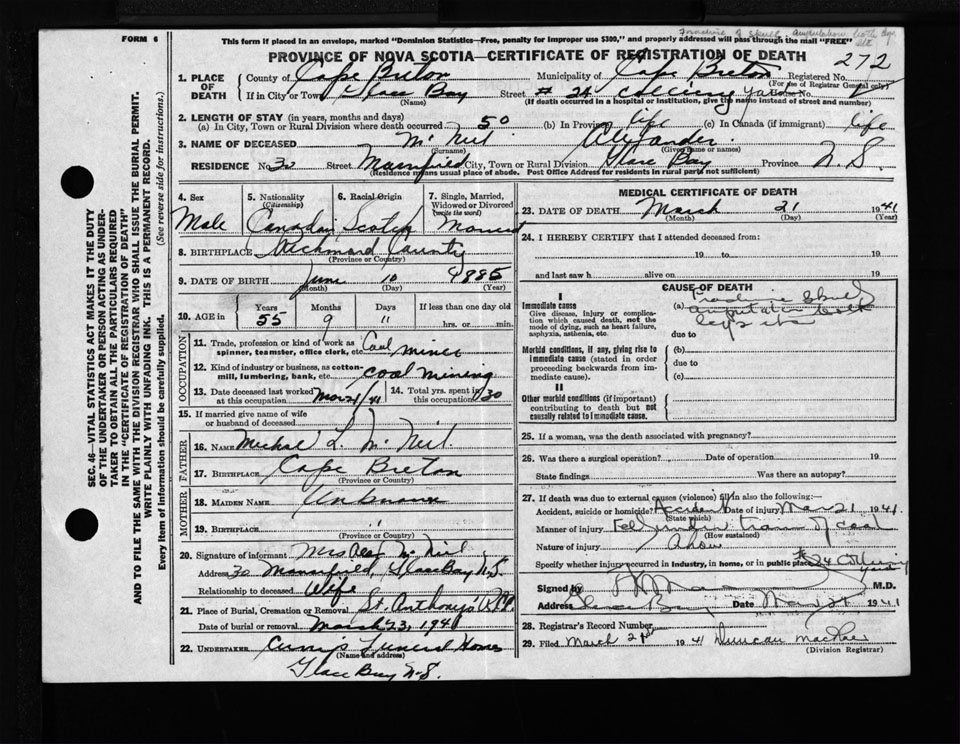 FORM 6
This form if placed in an envelope, marked "Dominion Statistics—Free, penalty for improper use $300," and properly addressed will pass through the mail "FREE"
Fracture of Skull amputation both legs
PROVINCE OF NOVA SCOTIA—CERTIFICATE OF REGISTRATION OF DEATH
272
1. PLACE OF DEATH
County of Cape Breton Municipality of Cape Breton Registered No.
(For use of Registrar General only)
If in City or Town Glace Bay Street # 24 Colliery Yard
(Name) (If death occurred in a hospital or institution, give the name instead of street and number)
2. LENGTH OF STAY (in years, months and days)
(a) In City, Town or Rural Division where death occurred 50 (b) In Province life (c) In Canada (if immigrant) life
3. NAME OF DECEASED McNeil Alexander
(Surname) (Given name or names)
RESIDENCE No 30 Street Mansfield City, Town or Rural Division Glace Bay Province N S
(Residence means usual place of abode. Post Office Address for residents in rural parts not sufficient)
4. Sex
Male
5. Nationality
(Citizenship)
Canadian
6. Racial Origin
Scotch
7. Single, Married, Widowed or Divorced
(write the word)
Married
8. BIRTHPLACE Richmond County
(Province or Country)
9. DATE OF BIRTH June 10 1885
(Month) (Day)
10. AGE in
Years Months Days If less than one day old
55 9 11 hrs. or min.
OCCUPATION
11. Trade, profession or kind of work as spinner, teamster, office clerk, etc. Coal miner
12. Kind of industry or business, as cotton-mill, lumbering, bank, etc. coal mining
13. Date deceased last worked at this occupation Mar 21/41
14. Total yrs. spent in this occupation 30
15. If married give name of wife or husband of deceased
FATHER
16. Name Michael L. McNeil
17. BIRTHPLACE Cape Breton
(Province or Country)
MOTHER
18. MAIDEN NAME Unknown
19. BIRTHPLACE "
(Province or Country)
20. Signature of informant Mrs Alex McNeil
Address 30 Mansfield, Glace Bay N.S
Relationship to deceased Wife
21. Place of Burial, Cremation or Removal St. Anthony's
Date of burial or removal March 23, 1941
22. UNDERTAKER Curry's Funeral Home
(Name and address)
Glace Bay N-S.
MEDICAL CERTIFICATE OF DEATH
23. DATE OF DEATH March 21 1941
(Month) (Day) (Year)
24. I HEREBY CERTIFY that I attended deceased from:
19 to 19
and last saw h alive on 19
CAUSE OF DEATH
I
Immediate cause
Give disease, injury or complication which caused death, not the mode of dying, such as heart failure, asphyxia, asthenia, etc.
(a) Fracture Skull
amputation both
legs etc
due to
Morbid conditions, if any, giving rise to immediate cause (stated in order proceeding backwards from immediate cause).
(b)
due to
(c)
II
Other morbid conditions (if important) contributing to death but not causally related to immediate cause.
25. If a woman, was the death associated with pregnancy?
26. Was there a surgical operation? Date of operation 19
State findings Was there an autopsy?
27. If death was due to external causes (violence) fill in also the following:
Accident, suicide or homicide? Accident Date of injury Mar 21 1941
(State which)
Manner of injury Fell under train of coal
(How sustained)
Nature of injury above
Specify whether injury occurred in industry, in home, or in public place #24 Colliery
Signed by M.D.
Address Glace Bay Date Mar 21 1941
28. Registrar's Record Number
29. Filed March 21st 1941 Duncan MacRae
(Division Registrar)
SEC. 46—VITAL STATISTICS ACT MAKES IT THE DUTY
OF THE UNDERTAKER OR PERSON ACTING AS UNDER-
TAKER TO OBTAIN ALL THE PARTICULARS REQUIRED
IN THE "CERTIFICATE OF REGISTRATION OF DEATH"
AND TO FILE THE SAME WITH THE DIVISION REGISTRAR WHO SHALL ISSUE THE BURIAL PERMIT.
WRITE PLAINLY WITH UNFADING INK. THIS IS A PERMANENT RECORD.
Every item of information should be carefully supplied. (See reverse side for instructions.)